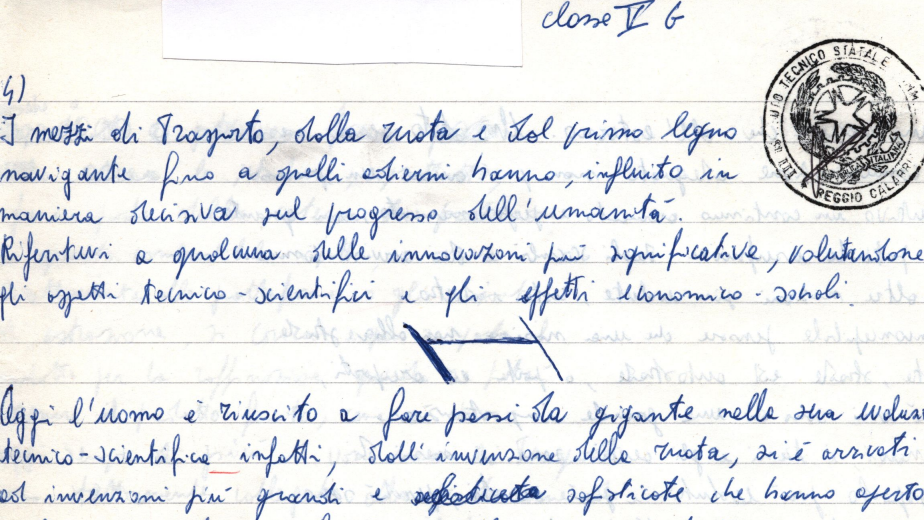 classe V G
TECNICO STATALE
REGGIO CALABRIA
4)
I mezzi di Trasporto, dalla ruota e dal primo legno
navigante fino a quelli odierni hanno, influito in
maniera decisiva sul progresso dell'umanità.
Riferitevi a qualcuna delle innovazioni più significative, valutandone
gli aspetti tecnico-scientifici e gli effetti economico-sociali.
Oggi l'uomo è riuscito a fare passi da gigante nella sua
tecnico-scientifica infatti, dall'invenzione della ruota, si è arrivati
ad invenzioni più grandi e sofisticate che hanno aperto